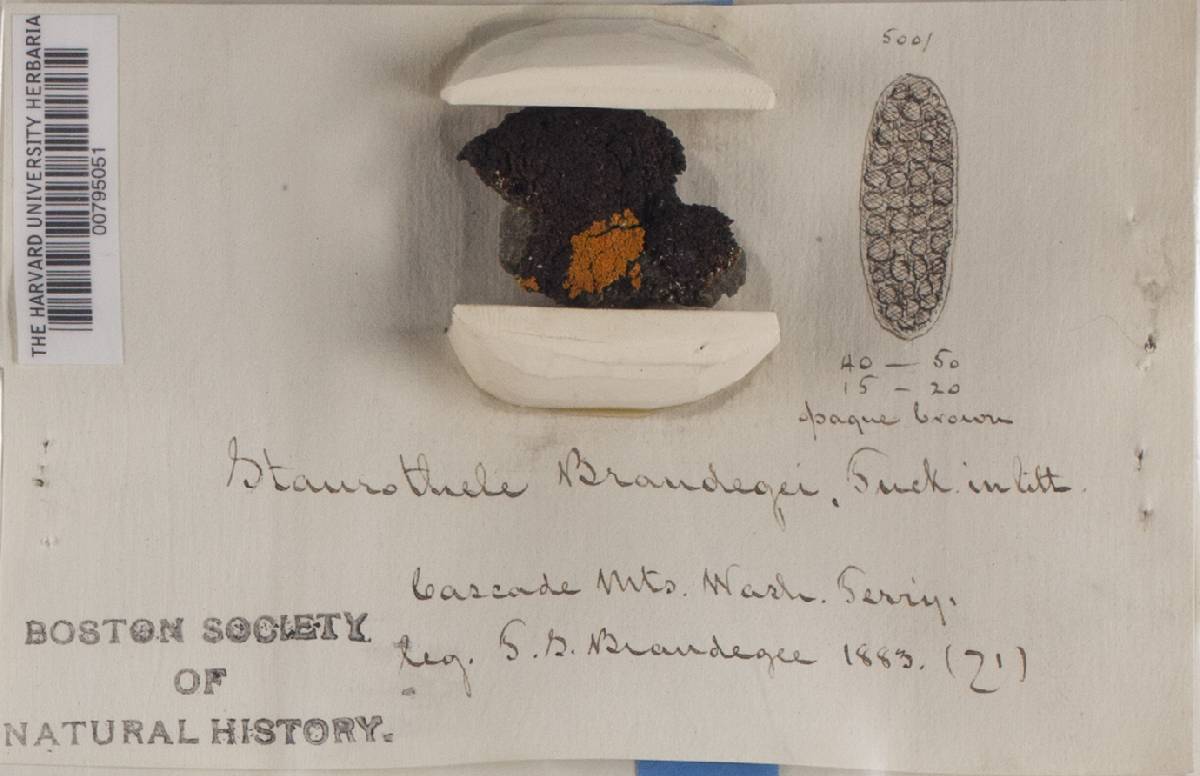 THE HARVARD UNIVERSITY HERBARIA
00795051
500/
40 — 50
15 — 20
opaque brown
Staurothele Brandegei, Tuck. in litt.
Cascade Mts. Wash. Terriy.
leg. T. S. Brandegee 1883. (71)
BOSTON SOCIETY
OF
NATURAL HISTORY.